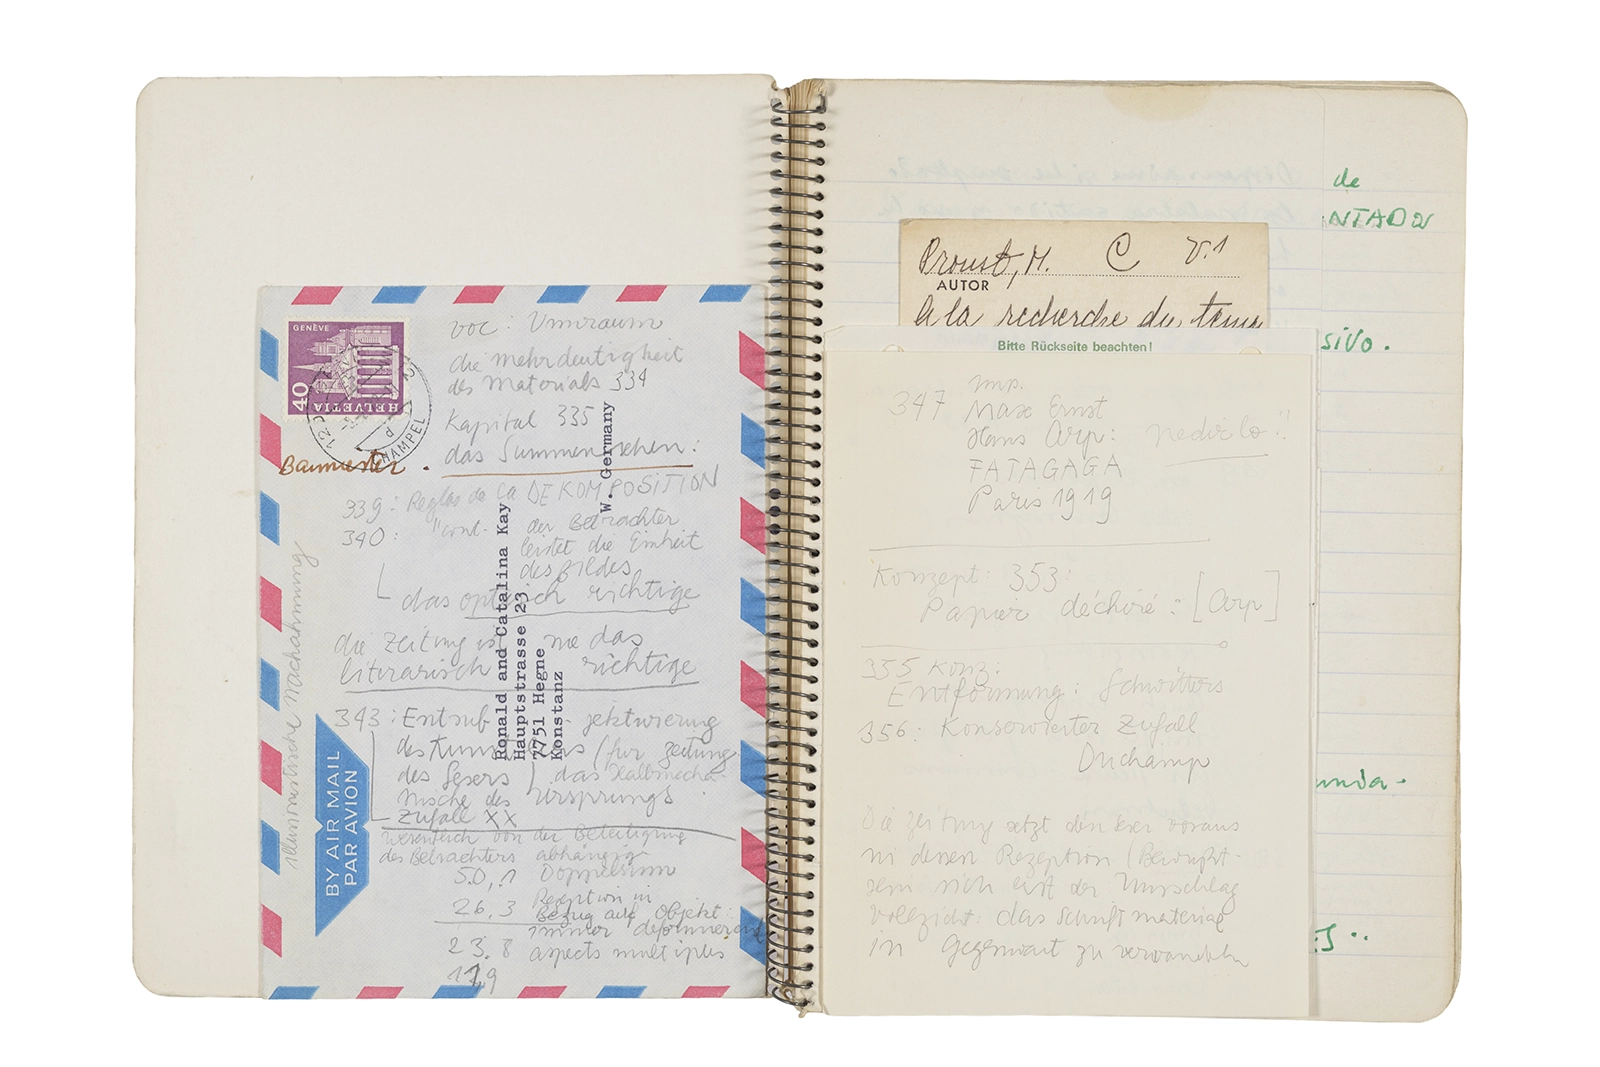 GENÈVE
40
HELVETIA
CHAMPEL
voc: Umraum
die mehrdeutigkeit
des Materials 334
Kapital 335
das Summensehen:
Baumeister.
339: Reglas de la DEKOMPOSITION
340: "cont- der Betrachter
leistet die Einheit
des Bildes
das optisch richtige
die Zeitung ist nie das
literarisch richtige
343: Entsub jektivierung
des Kunst (für Zeitung
des Lesers) das Halbmecha-
nische des Ursprungs
Zufall XX
wesentlich von der Beteiligung
des Betrachters abhängige
50,1 Doppelsinn
26.3 Rezeption in
Bezug auf Objekt:
immer deformierend
23.8 aspects multiples
illusionistische Nachahmung
BY AIR MAIL
PAR AVION
Ronald and Catalina Kay
Hauptstrasse 23
7751 Hegne
Konstanz
W. Germany
de
NTADOR
Proust, M. C V.1
AUTOR
A la recherche du temps
Bitte Rückseite beachten!
sivo.
imp.
347 Max Ernst
Hans Arp: pedirlo!!
FATAGAGA
Paris 1919
Konzept: 353:
Papier déchiré: [Arp]
355 Konz:
Entformung: Schwitters
356: Konservierter Zufall
Duchamp
unda-
Die Zeitung setzt den Leser voraus
in dessen Rezeption (Bewußt-
sein sich erst der Umschlag
vollzieht: das Schriftmaterial
in Gegenwart zu verwandeln
ES..